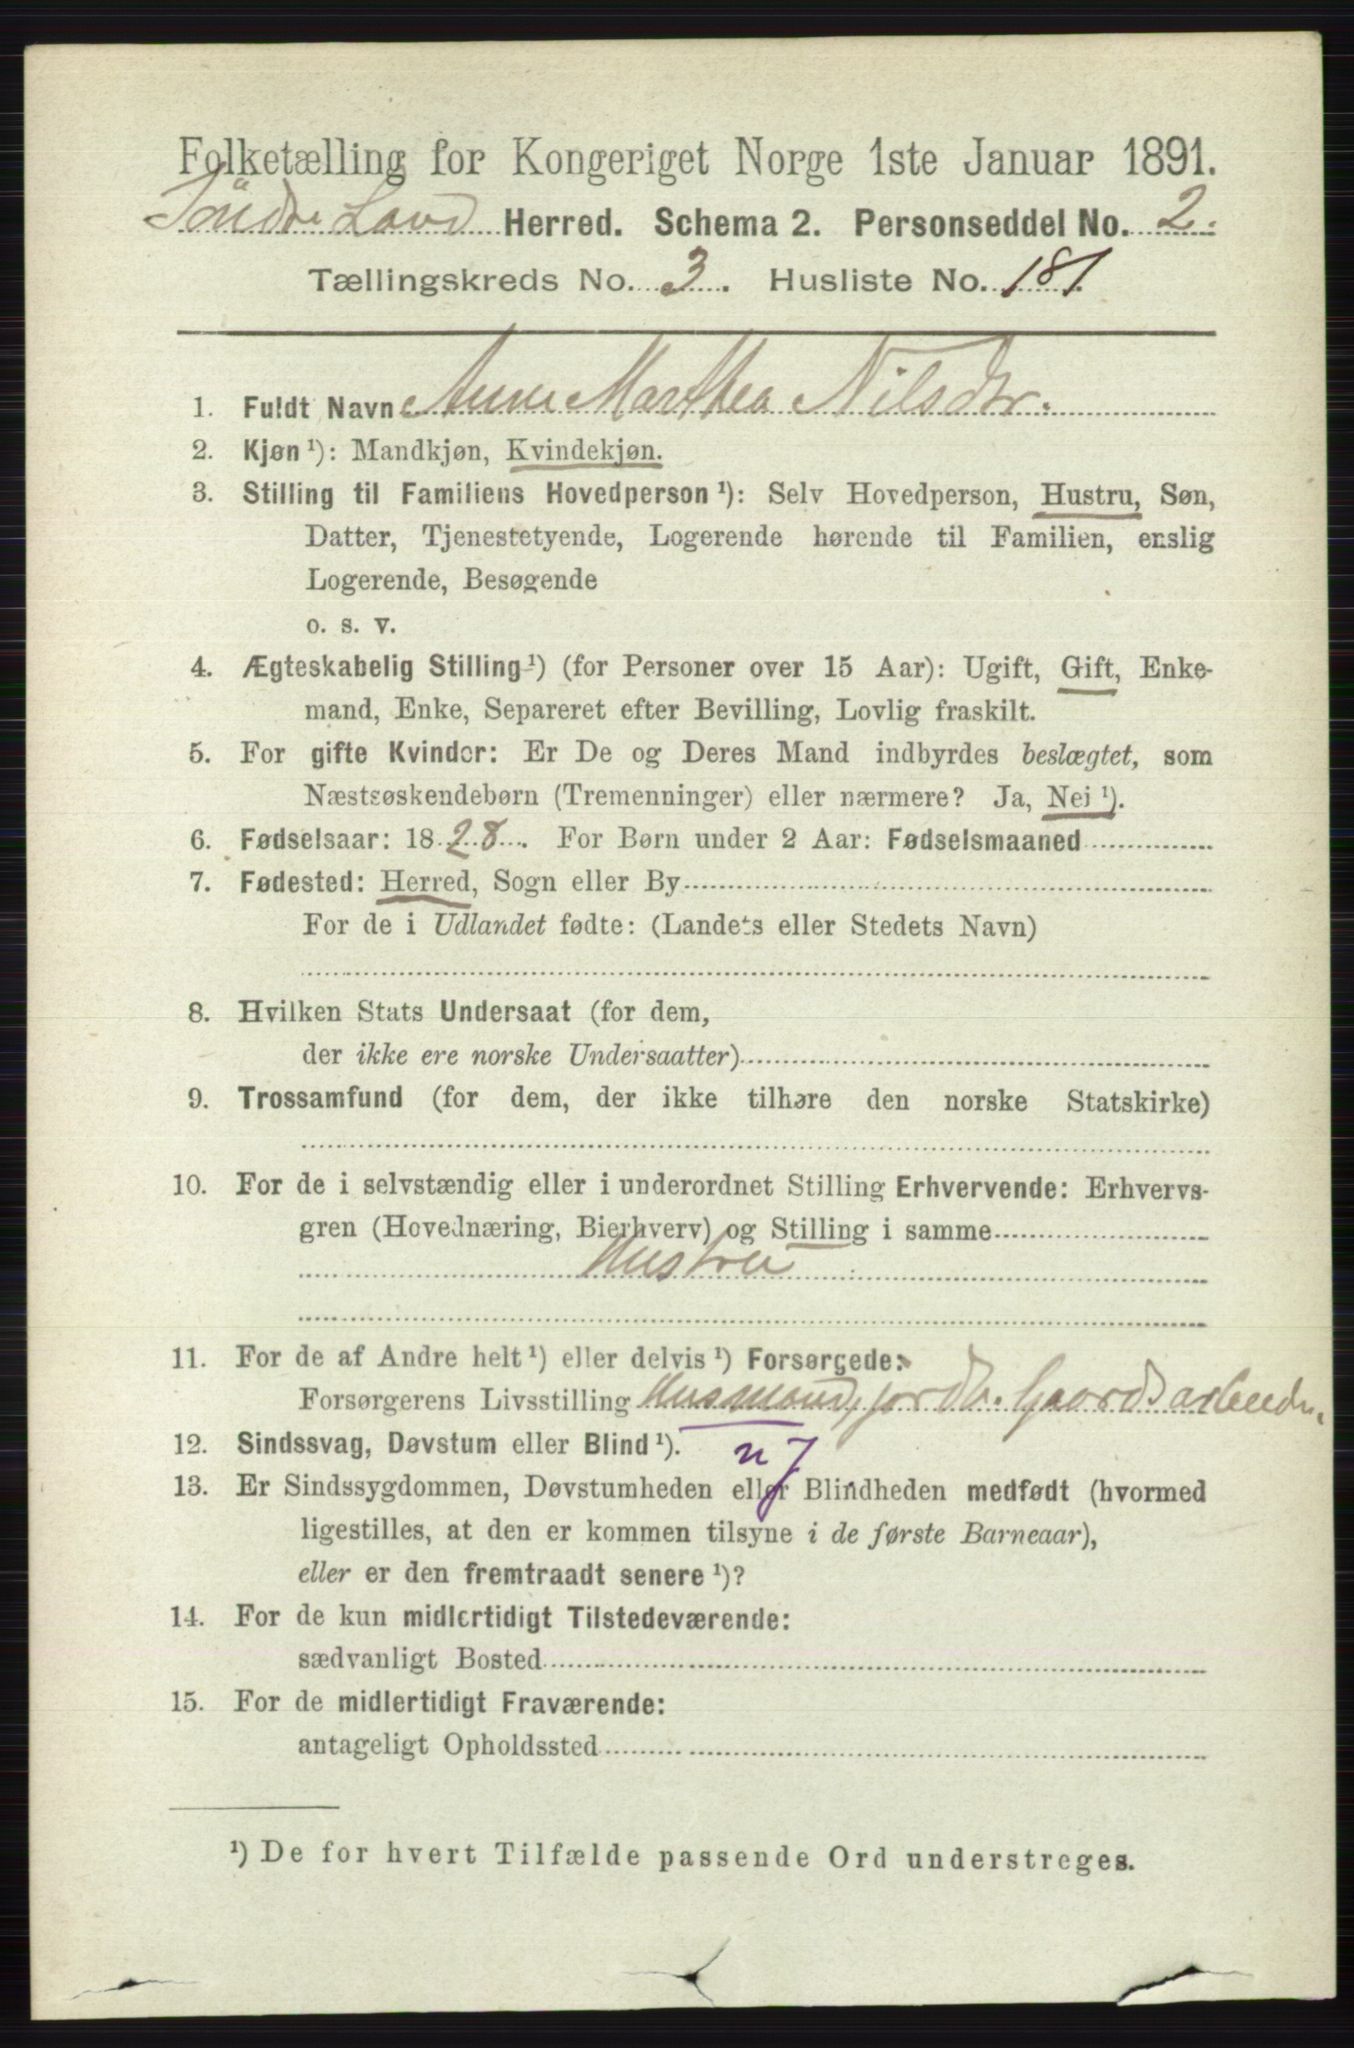 Folketælling for Kongeriget Norge 1ste Januar 1891.
Söndre Land Herred. Schema 2. Personseddel No. 2.
Tællingskreds No. 3. Husliste No. 181.
1. Fuldt Navn Anne Marthea Nilsdtr.
2. Kjøn ¹): Mandkjøn, Kvindekjøn.
3. Stilling til Familiens Hovedperson ¹): Selv Hovedperson, Hustru, Søn,
Datter, Tjenestetyende, Logerende hørende til Familien, enslig
Logerende, Besøgende
o. s. v.
4. Ægteskabelig Stilling ¹) (for Personer over 15 Aar): Ugift, Gift, Enke-
mand, Enke, Separeret efter Bevilling, Lovlig fraskilt.
5. For gifte Kvinder: Er De og Deres Mand indbyrdes beslægtet, som
Næstsøskendebørn (Tremenninger) eller nærmere? Ja, Nei ¹).
6. Fødselsaar: 1828. For Børn under 2 Aar: Fødselsmaaned
7. Fødested: Herred, Sogn eller By
For de i Udlandet fødte: (Landets eller Stedets Navn)
8. Hvilken Stats Undersaat (for dem,
der ikke ere norske Undersaatter)
9. Trossamfund (for dem, der ikke tilhøre den norske Statskirke)
10. For de i selvstændig eller i underordnet Stilling Erhvervende: Erhvervs-
gren (Hovednæring, Bierhverv) og Stilling i samme
Hustru
11. For de af Andre helt ¹) eller delvis ¹) Forsørgede:
Forsørgerens Livsstilling Husmand, jordbr. Gaardsarbeider
12. Sindssvag, Døvstum eller Blind ¹).
13. Er Sindssygdommen, Døvstumheden eller Blindheden medfødt (hvormed
ligestilles, at den er kommen tilsyne i de første Barneaar),
eller er den fremtraadt senere ¹)?
14. For de kun midlertidigt Tilstedeværende:
sædvanligt Bosted
15. For de midlertidigt Fraværende:
antageligt Opholdssted
¹) De for hvert Tilfælde passende Ord understreges.